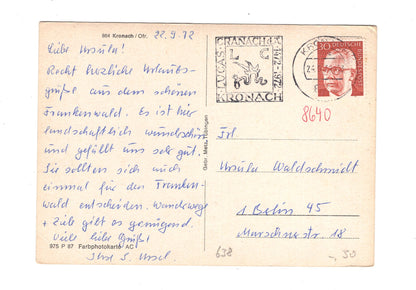 864 Kronach / Ofr.
22.9.72
Liebe Ursula!
Recht herzliche Urlaubs-
grüße aus dem schönen
Frankenwald. Es ist hier
landschaftlich wunderschön
und gefällt uns sehr gut.
Sie sollten sich auch
einmal für den Franken
wald entscheiden. Wanderwege
+ Ziele gibt es genügend.
Viele liebe Grüße!
Ihre S. Ursel
975 P 87 Farbphotokarte AC
Gebr. Metz, Tübingen
LUCAS CRANACH 1472-1972
L C
KRONACH
KRON
30 DEUTSCHE
8640
Frl.
Ursula Waldschmidt
1 Berlin 45
Marschnerstr. 18
638
-,50